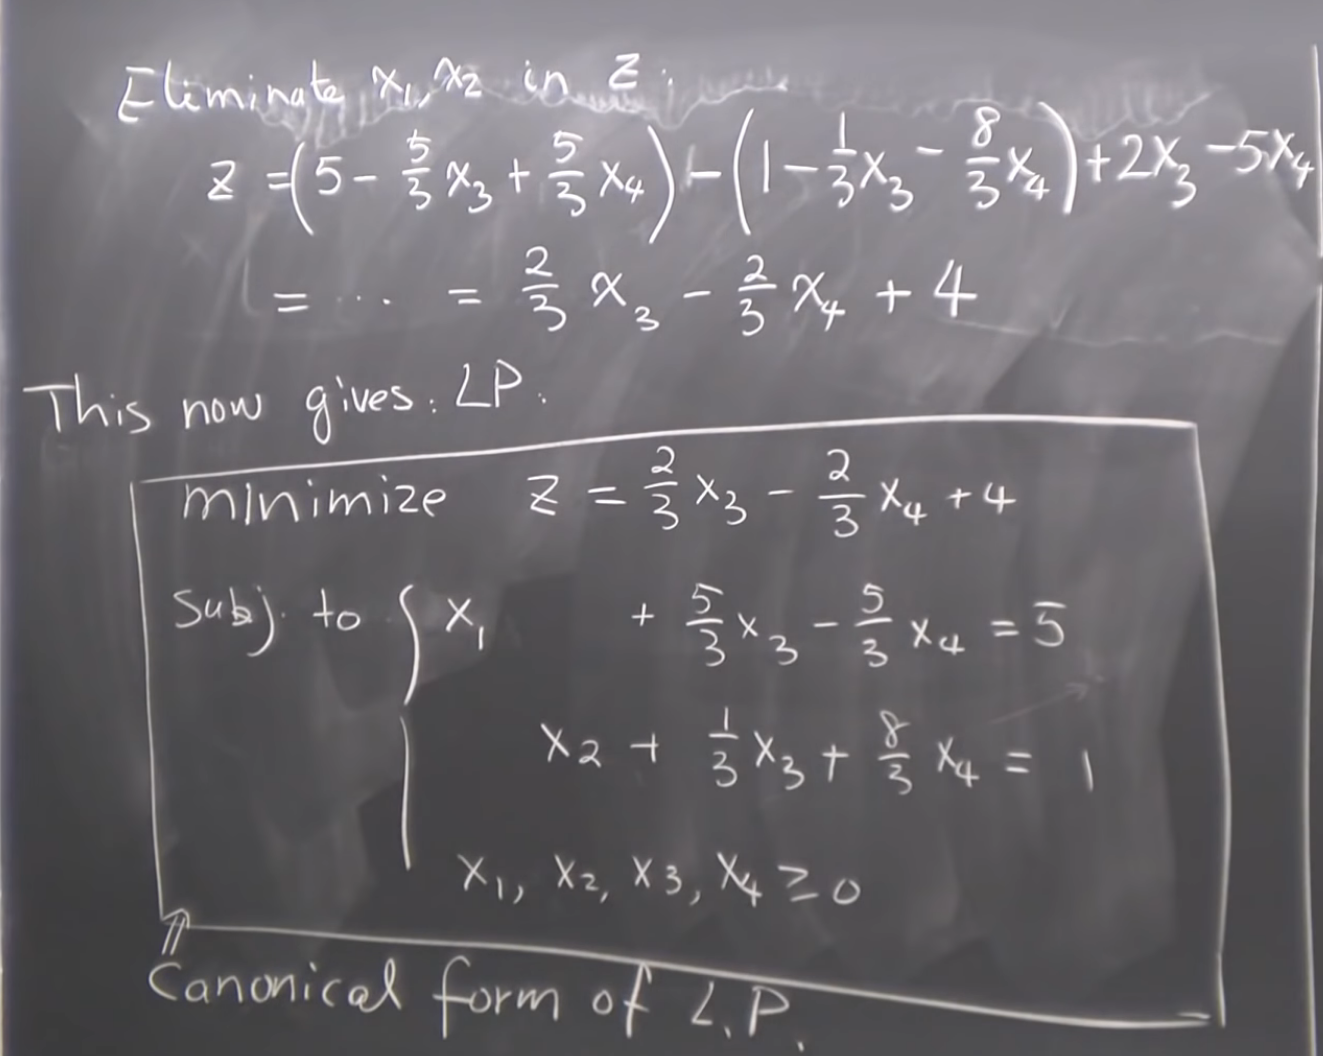 Eliminate x₁, x₂ in z.
z = (5 - 5/3 x₃ + 5/3 x₄) - (1 - 1/3 x₃ - 8/3 x₄) + 2x₃ - 5x₄
= ... = 2/3 x₃ - 2/3 x₄ + 4
This now gives: LP.
minimize z = 2/3 x₃ - 2/3 x₄ + 4
Subj. to { x₁ + 5/3 x₃ - 5/3 x₄ = 5
x₂ + 1/3 x₃ + 8/3 x₄ = 1
x₁, x₂, x₃, x₄ ≥ 0
⇑
Canonical form of L.P.